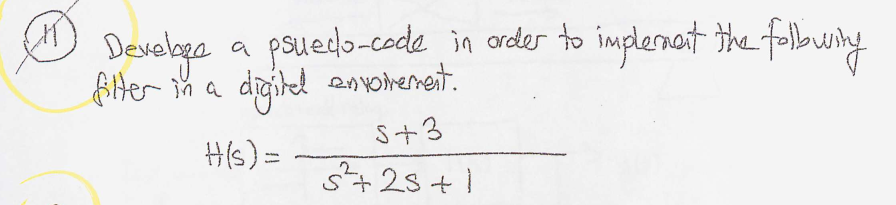 11 Develope a psuedo-code in order to implement the following
filter in a digital envoirement.
H(s) = (s+3) / (s²+2s+1)